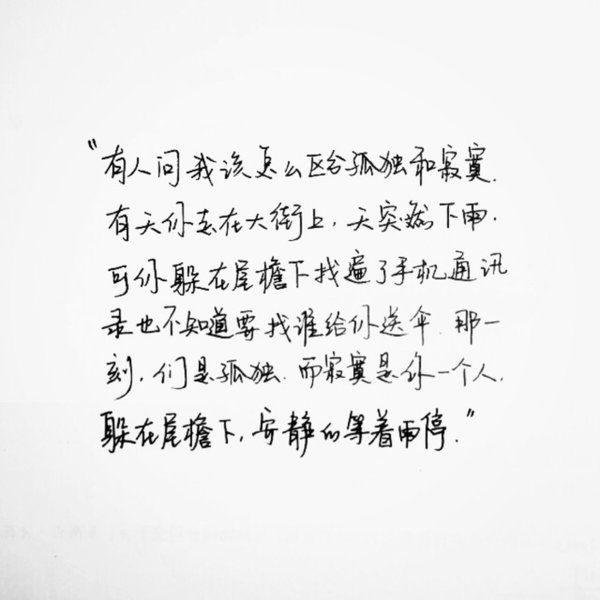 "有人问我该怎么区分孤独和寂寞.
有天你走在大街上,天突然下雨.
可你躲在屋檐下找遍了手机通讯
录也不知道要找谁给你送伞.那一
刻,们是孤独.而寂寞是你一个人.
躲在屋檐下,安静的等着雨停."